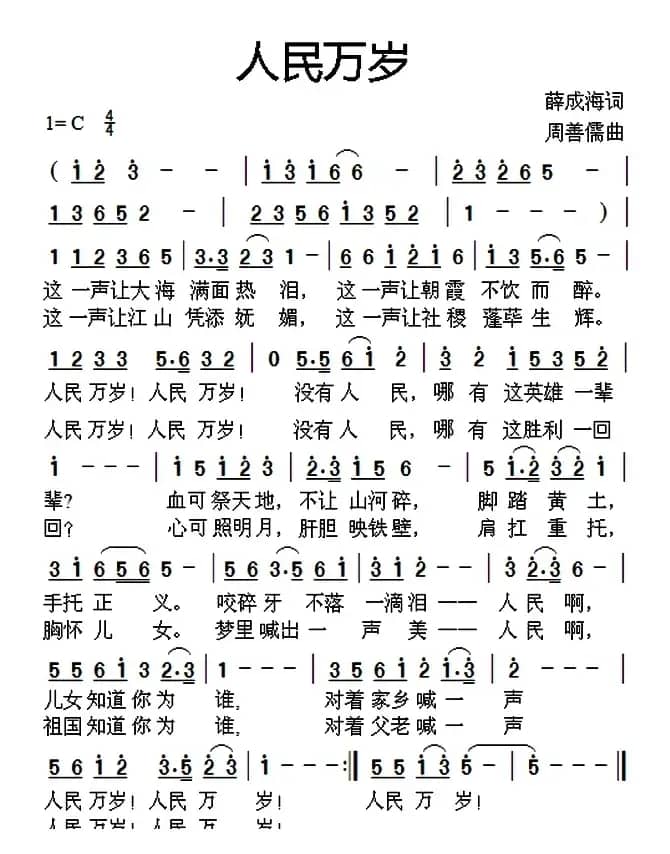 人民万岁
薛成海词
1=C 4/4
周善儒曲
( 1 2 3 - - | 1 3 1 6 6 - - | 2 3 2 6 5 - - |
1 3 6 5 2 - | 2 3 5 6 1 3 5 2 | 1 - - - ) |
1 1 2 3 6 5 | 3·3 2 3 1 - | 6 6 1 2 1 6 | 1 3 5·6 5 - |
这一声让大海 满面热 泪， 这一声让朝霞 不饮而 醉。
这一声让江山 凭添妩 媚， 这一声让社稷 蓬荜生 辉。
1 2 3 3 5·6 3 2 | 0 5·5 6 1 2 | 3 2 1 5 3 5 2 |
人民万岁！人民 万岁！ 没有人 民，哪 有 这英雄一辈
人民万岁！人民 万岁！ 没有人 民，哪 有 这胜利一回
1 - - - | 1 5 1 2 3 | 2·3 1 5 6 - | 5 1·2 3 2 1 |
辈？ 血可祭天地，不让 山河碎， 脚 踏 黄 土，
回？ 心可照明月，肝胆 映铁壁， 肩 扛 重 托，
3 1 6 5 6 5 - | 5 6 3·5 6 5 | 3 1 2 - - | 3 2 2·3 6 |
手托正 义。 咬碎牙 不落 一滴泪 —— 人民 啊，
胸怀儿 女。 梦里喊出一 声 美 —— 人民 啊，
5 5 6 1 3 2·3 | 1 - - - | 3 5 6 1 2 1·3 | 2 - - -
儿女知道你为 谁， 对着家乡喊一 声
祖国知道你为 谁， 对着父老喊一 声
5 6 1 2 3·5 2 3 | 1 - - - :‖ 5 5 1 3 5 - - | 5 - - - ‖
人民万岁！人民 万 岁！ 人民 万 岁！
人民万岁！人民 万 岁！